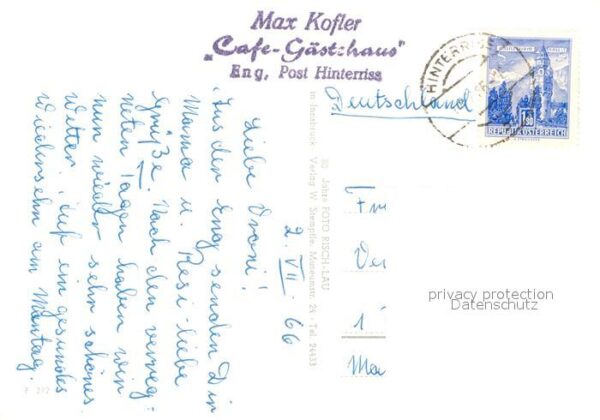 Max Kofler
„Cafe-Gästehaus"
Eng, Post Hinterriss
HINTERRISS
REPUBLIK ÖSTERREICH
1.80
Deutschland
2. VII. 66
Liebe Vroni!
Aus der Eng senden Dir
Mama u. Resi liebe
Grüße. Nach den verreg-
neten Tagen haben wir
nun wieder sehr schönes
Wetter. Auf ein gesundes
Wiedersehn am Montag.
30 Jahre FOTO RISCH-LAU
in Innsbruck · Verlag W. Stempfle, Museumstr. 24 · Tel. 24433
Fr
Ve
1
Ma
privacy protection
Datenschutz